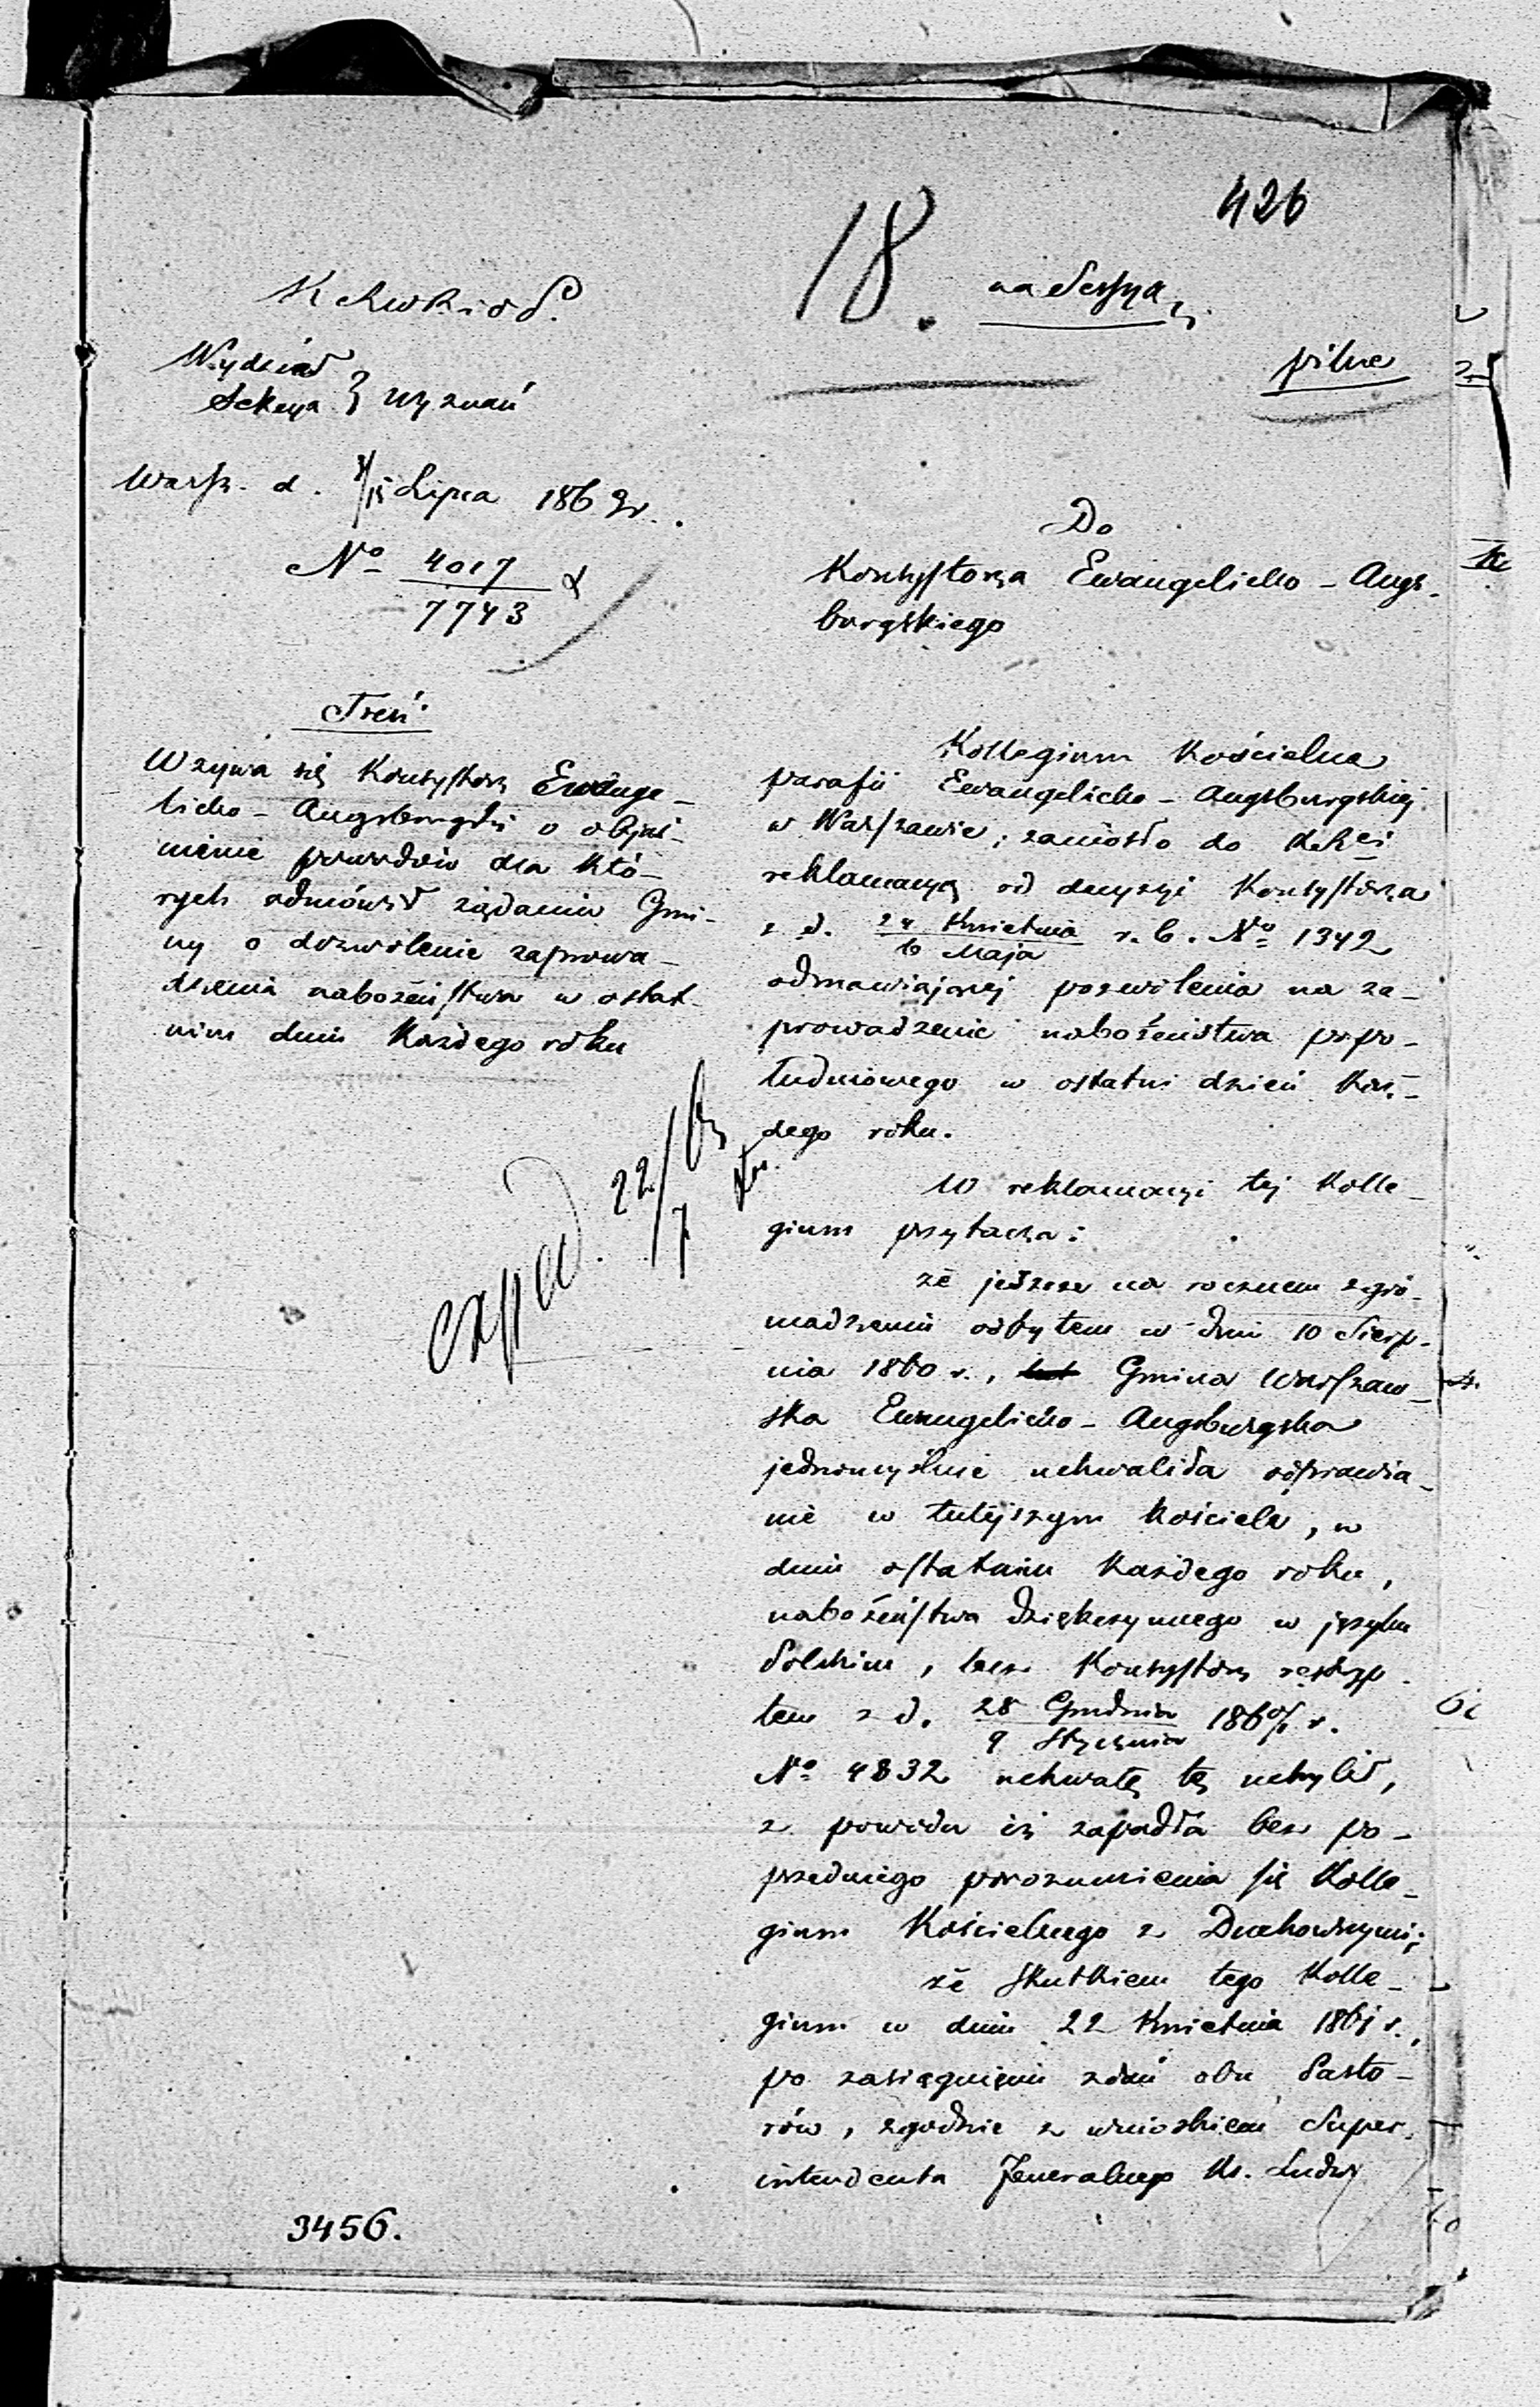 426
18. na Sessyą
pilne
K R W R i O P.
Wydział
Sekcya } wyznań
Warsz. d. 3/15 Lipca 1862 r.
No 4017
7743
Treść
Wzywa się Konsystorz Ewange-
licko-Augsburgski o objaś-
nienie powodów dla któ-
rych odmówił żądaniu Gmi-
ny o dozwolenie zaprowa-
dzenia nabożeństwa w ostat-
nim dniu każdego roku
exped. 22/7 62
3456.
Do
Konsystorza Ewangelicko-Augs-
burgskiego
Kollegium Kościelne
parafii Ewangelicko-Augsburgskiej
w Warszawie, zaniosło do
reklamacyę od decyzyi Konsystorza
z d. 24 Kwietnia r. b. No 1342
6 Maja
odmawiającej pozwolenia na za-
prowadzenie nabożeństwa popo-
łudniowego w ostatni dzień każ-
dego roku.
W reklamacyi tej Kolle-
gium przytacza:
że jeszcze na rocznem zgro-
madzeniu odbytem w dniu 10 Sierp-
nia 1860 r., Gmina Warszaw-
ska Ewangelicko-Augsburgska
jednomyślnie uchwaliła odprawia-
nie w tutejszym kościele, w
dniu ostatnim każdego roku,
nabożeństwa dziękczynnego w języku
Polskim, lecz Konsystorz reskryp-
tem z d. 28 Grudnia 1860/1 r.
9 Stycznia
No 4832 uchwałę tę uchylił,
z powodu iż zapadła bez po-
przedniego porozumienia się Kolle-
gium Kościelnego z Duchownymi;
że skutkiem tego Kolle-
gium w dniu 22 Kwietnia 1861 r.,
po zasiągnięciu zdań obu Pasto-
rów, zgodnie z wnioskiem Super-
intendenta Jeneralnego Ks. Ludwi